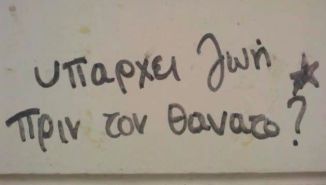 υπαρχει ζωή
πριν τον θανατο?